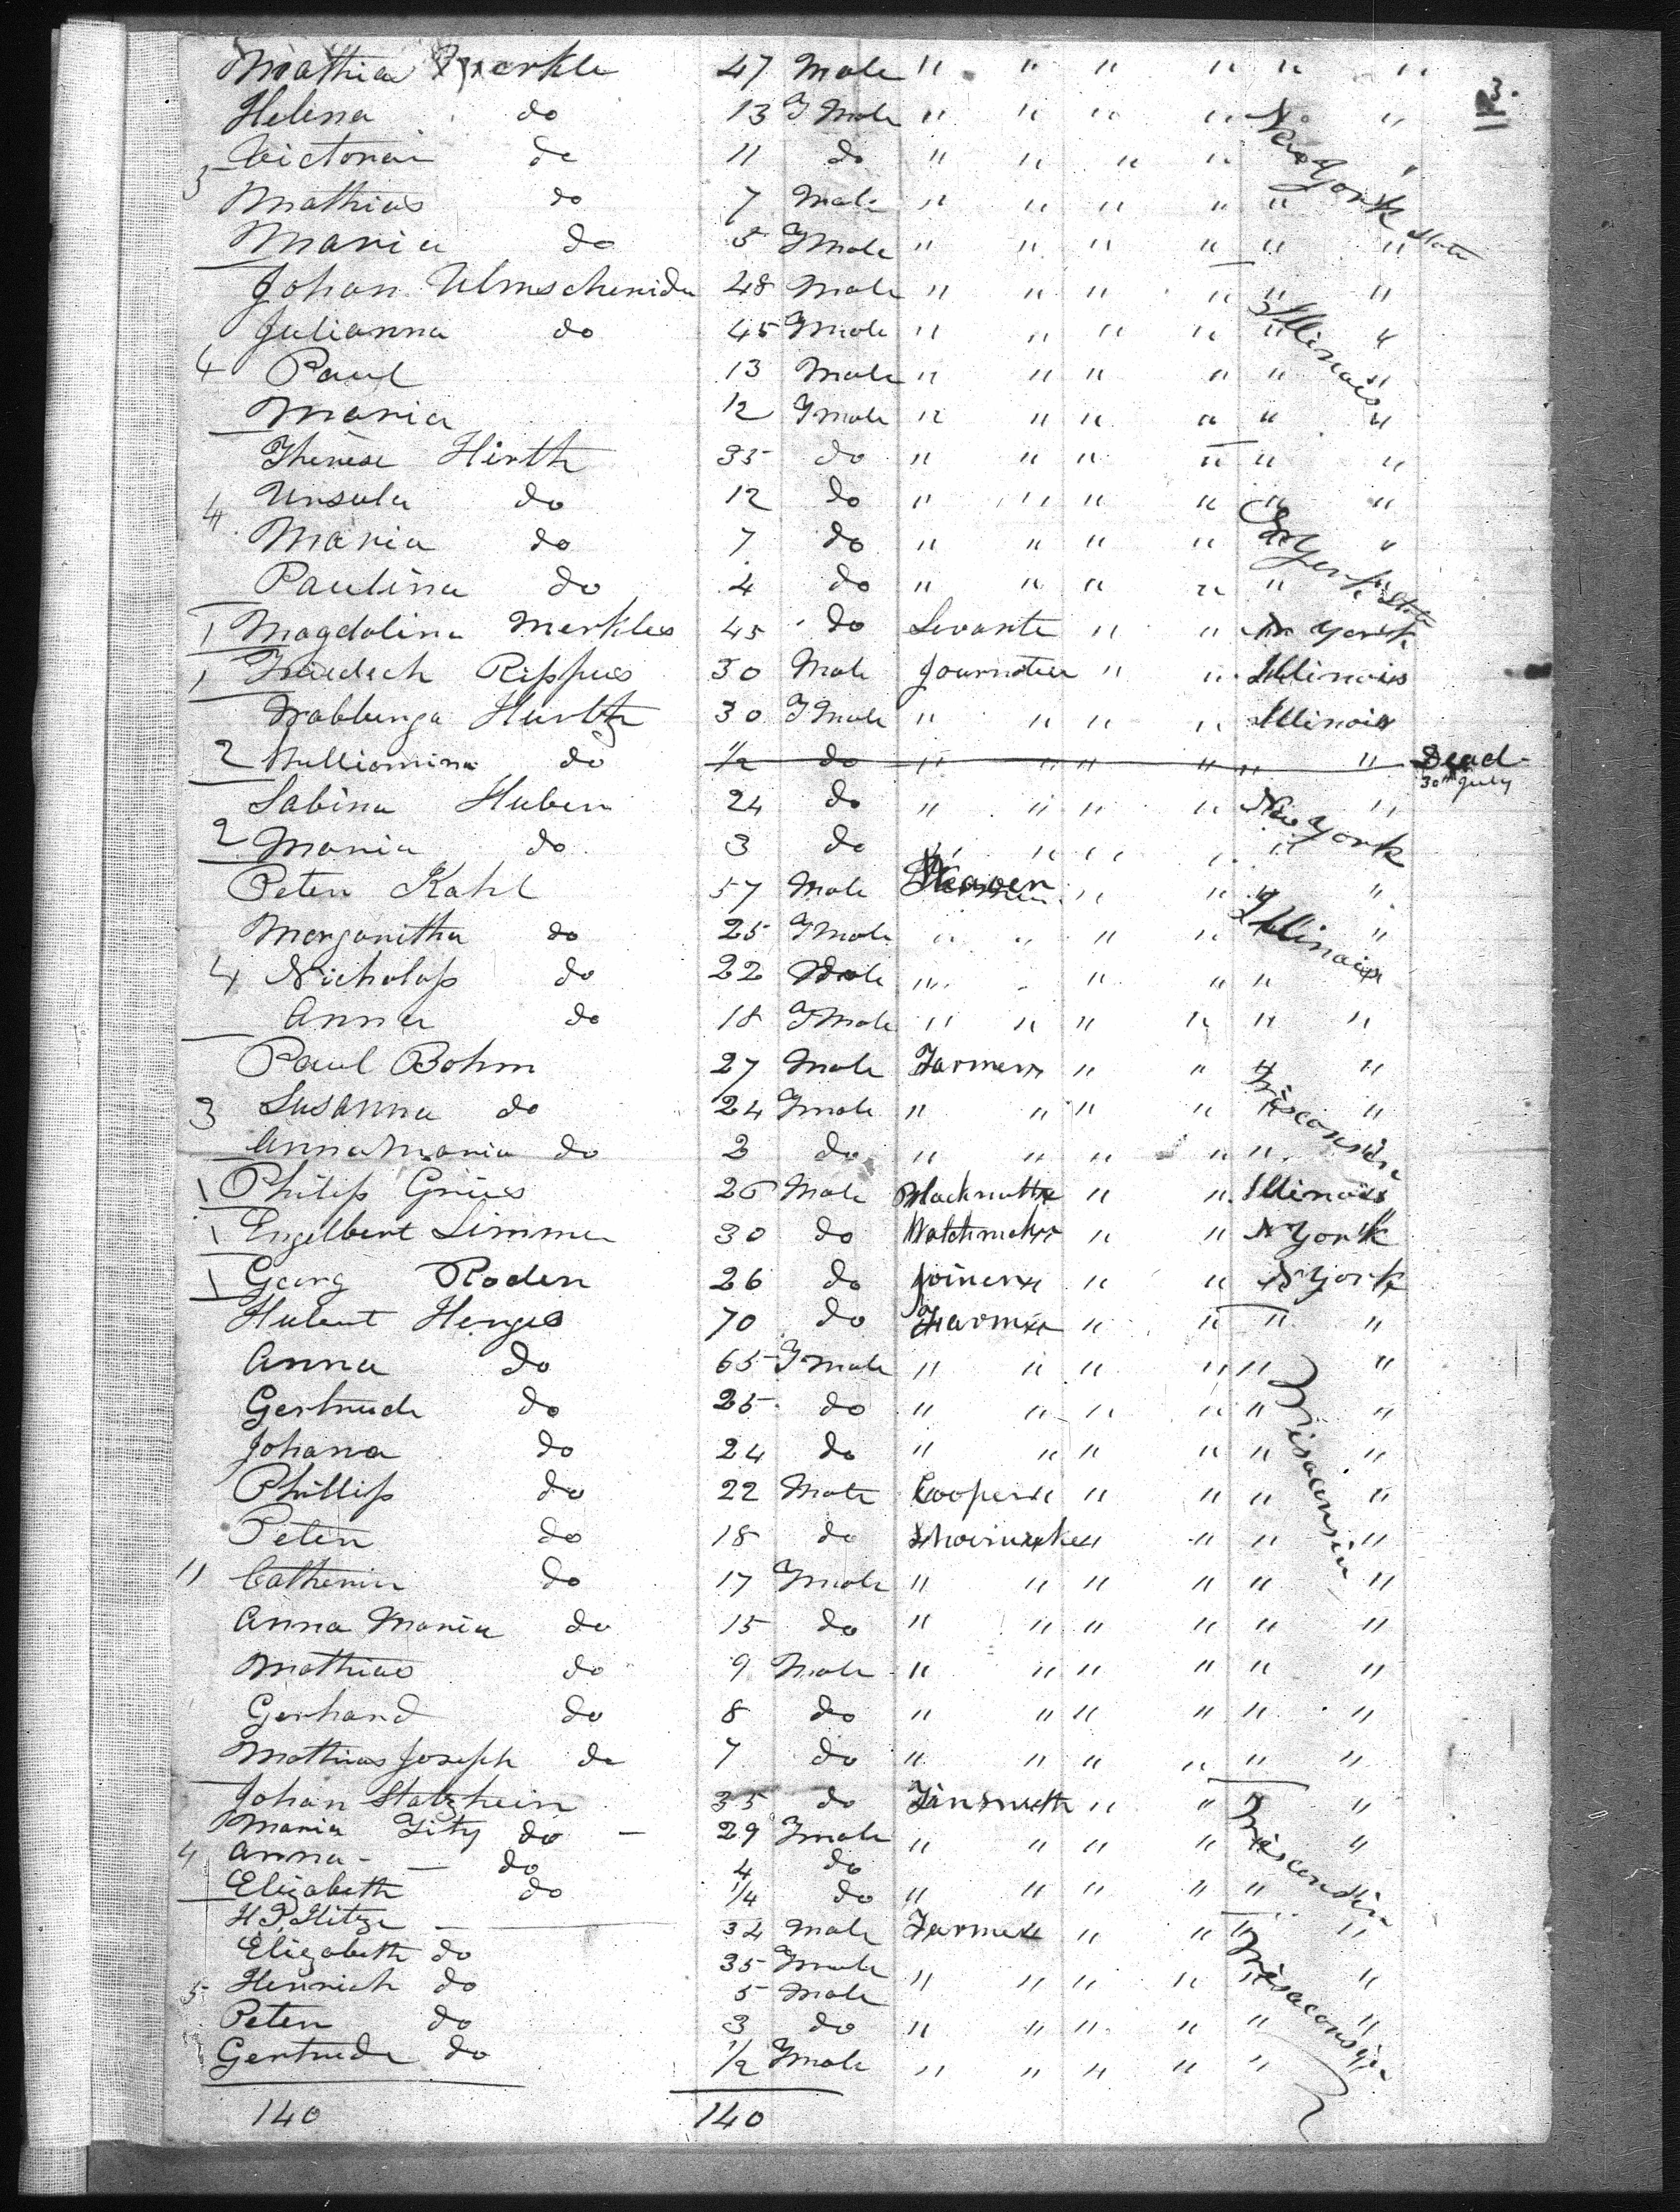 3.
Mathia Merkle 47 Male " " " " " "
Helena do 13 Fmale " " " " New York State "
Victoria do 11 do " " " " "
5 Mathias do 7 Male " " " " " "
Maria do 5 Fmale " " " " " "
Johan Ulmschneider 48 Male " " " " " "
Julianna do 45 Fmale " " " " Illinois "
4 Paul 13 Male " " " " " "
Maria 12 Fmale " " " " " "
Therese Hirth 35 do " " " " " "
4 Ursula do 12 do " " " " " "
Maria do 7 do " " " " N York State "
Paulina do 4 do " " " " "
1 Magdalina Merkles 45 do Sevante " " N York
1 Friedrich Rippus 30 Male " " Illinois
Hurbtz 30 Fmale " " " " Illinois
2 do 1/2 do " " " " " " Dead 30th July
Sabina Huber 24 do " " " " New York "
2 Maria do 3 do " " " " "
Peter Kahl 57 Male Weaver " " " "
Margaritha do 25 Fmale " " " " Illinois "
4 Nicholass do 22 Male " " " "
Anna do 18 Fmale " " " " " "
Paul Bohm 27 Male Farmer " " " "
3 Susanna do 24 Fmale " " " " Wisconsin "
Anna Maria do 2 do " " " " "
1 Philip Grües 26 Male Blacksmith " " Illinois
1 Engelbert Simmer 30 do Watchmaker " " N York
1 Georg Roder 26 do Joiner " " N York
Hubert Henges 70 do Farmer " " " "
Anna do 65 Fmale " " " " " "
Gertrude do 25 do " " " " " "
Johana do 24 do " " " " Wisconsin "
Phillip do 22 Male Cooper " " " "
Peter do 18 do Shoemaker " " "
11 Catherin do 17 Fmale " " " " " "
Anna Maria do 15 do " " " " " "
Mathias do 9 Male " " " " " "
Gerhard do 8 do " " " " " "
Mathias Joseph do 7 do " " " " " "
Johan Stalzhein 35 do Tinsmith " " " "
Maria do 29 Fmale " " " " Wisconsin "
4 Anna do 4 do
Elizabeth do 1/4 do " " " " "
H.P. Hitze 34 Male Farmer " " " "
Elizabeth do 35 Fmale " " " " Wisconsin "
5 Henrich do 5 Male
Peter do 3 do " " " " " "
Gertrude do 1/2 Fmale " " " " "
140 140